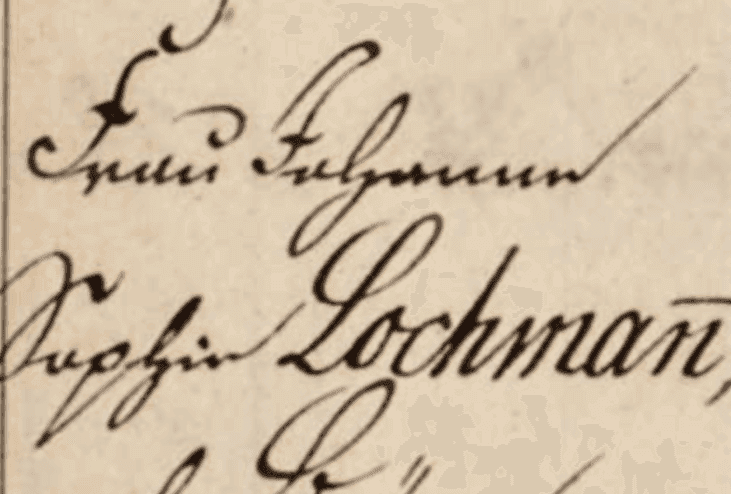 Frau Johanne
Sophie Lochman̄,